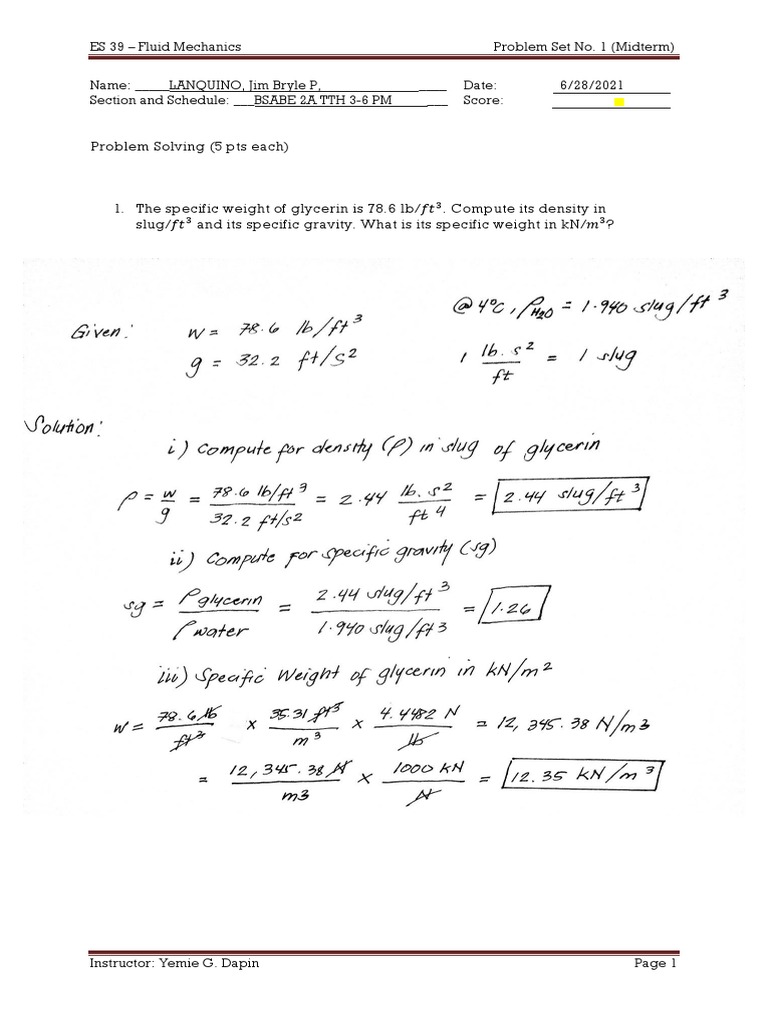 ES 39 – Fluid Mechanics Problem Set No. 1 (Midterm)
Name: _____LANQUINO, Jim Bryle P,______________ ____ Date: 6/28/2021
Section and Schedule: ___BSABE 2A TTH 3-6 PM ___ Score:
Problem Solving (5 pts each)
1. The specific weight of glycerin is 78.6 lb/ft³. Compute its density in
slug/ft³ and its specific gravity. What is its specific weight in kN/m³?
@ 4°C, ρH2O = 1.940 slug/ft³
Given: w = 78.6 lb/ft³
g = 32.2 ft/s²
1 lb.s²/ft = 1 slug
Solution:
i) Compute for density (ρ) in slug of glycerin
ρ = w/g = 78.6 lb/ft³ / 32.2 ft/s² = 2.44 lb.s²/ft4 = 2.44 slug/ft³
ii) Compute for specific gravity (sg)
sg = ρglycerin/ρwater = 2.44 slug/ft³ / 1.940 slug/ft3 = 1.26
iii) Specific Weight of glycerin in kN/m²
w = 78.6 lb/ft³ x 35.31 ft³/m³ x 4.4482 N/lb = 12,345.38 N/m3
= 12,345.38 N/m3 x 1000 KN/N = 12.35 KN/m³
Instructor: Yemie G. Dapin Page 1